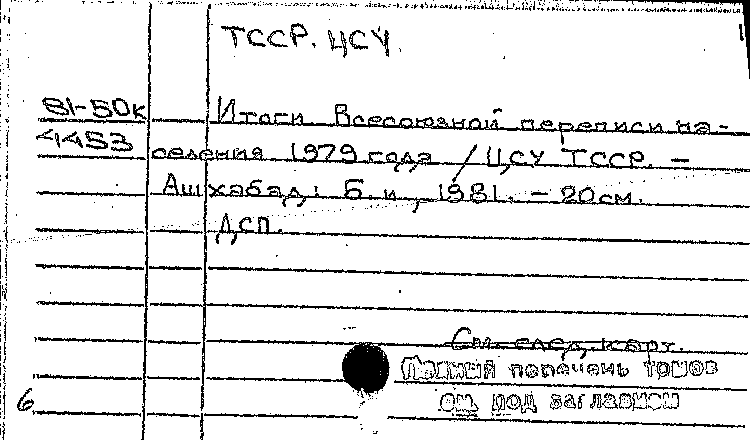 ТССР. ЦСУ.
81-50к Итоги Всесоюзной переписи на-
4453 селения 1979 года / ЦСУ ТССР. –
Ашхабад: Б. и., 1981. – 20 см.
ДСП.
См. след. карт.
Полный перечень томов
см. под заглавием
6